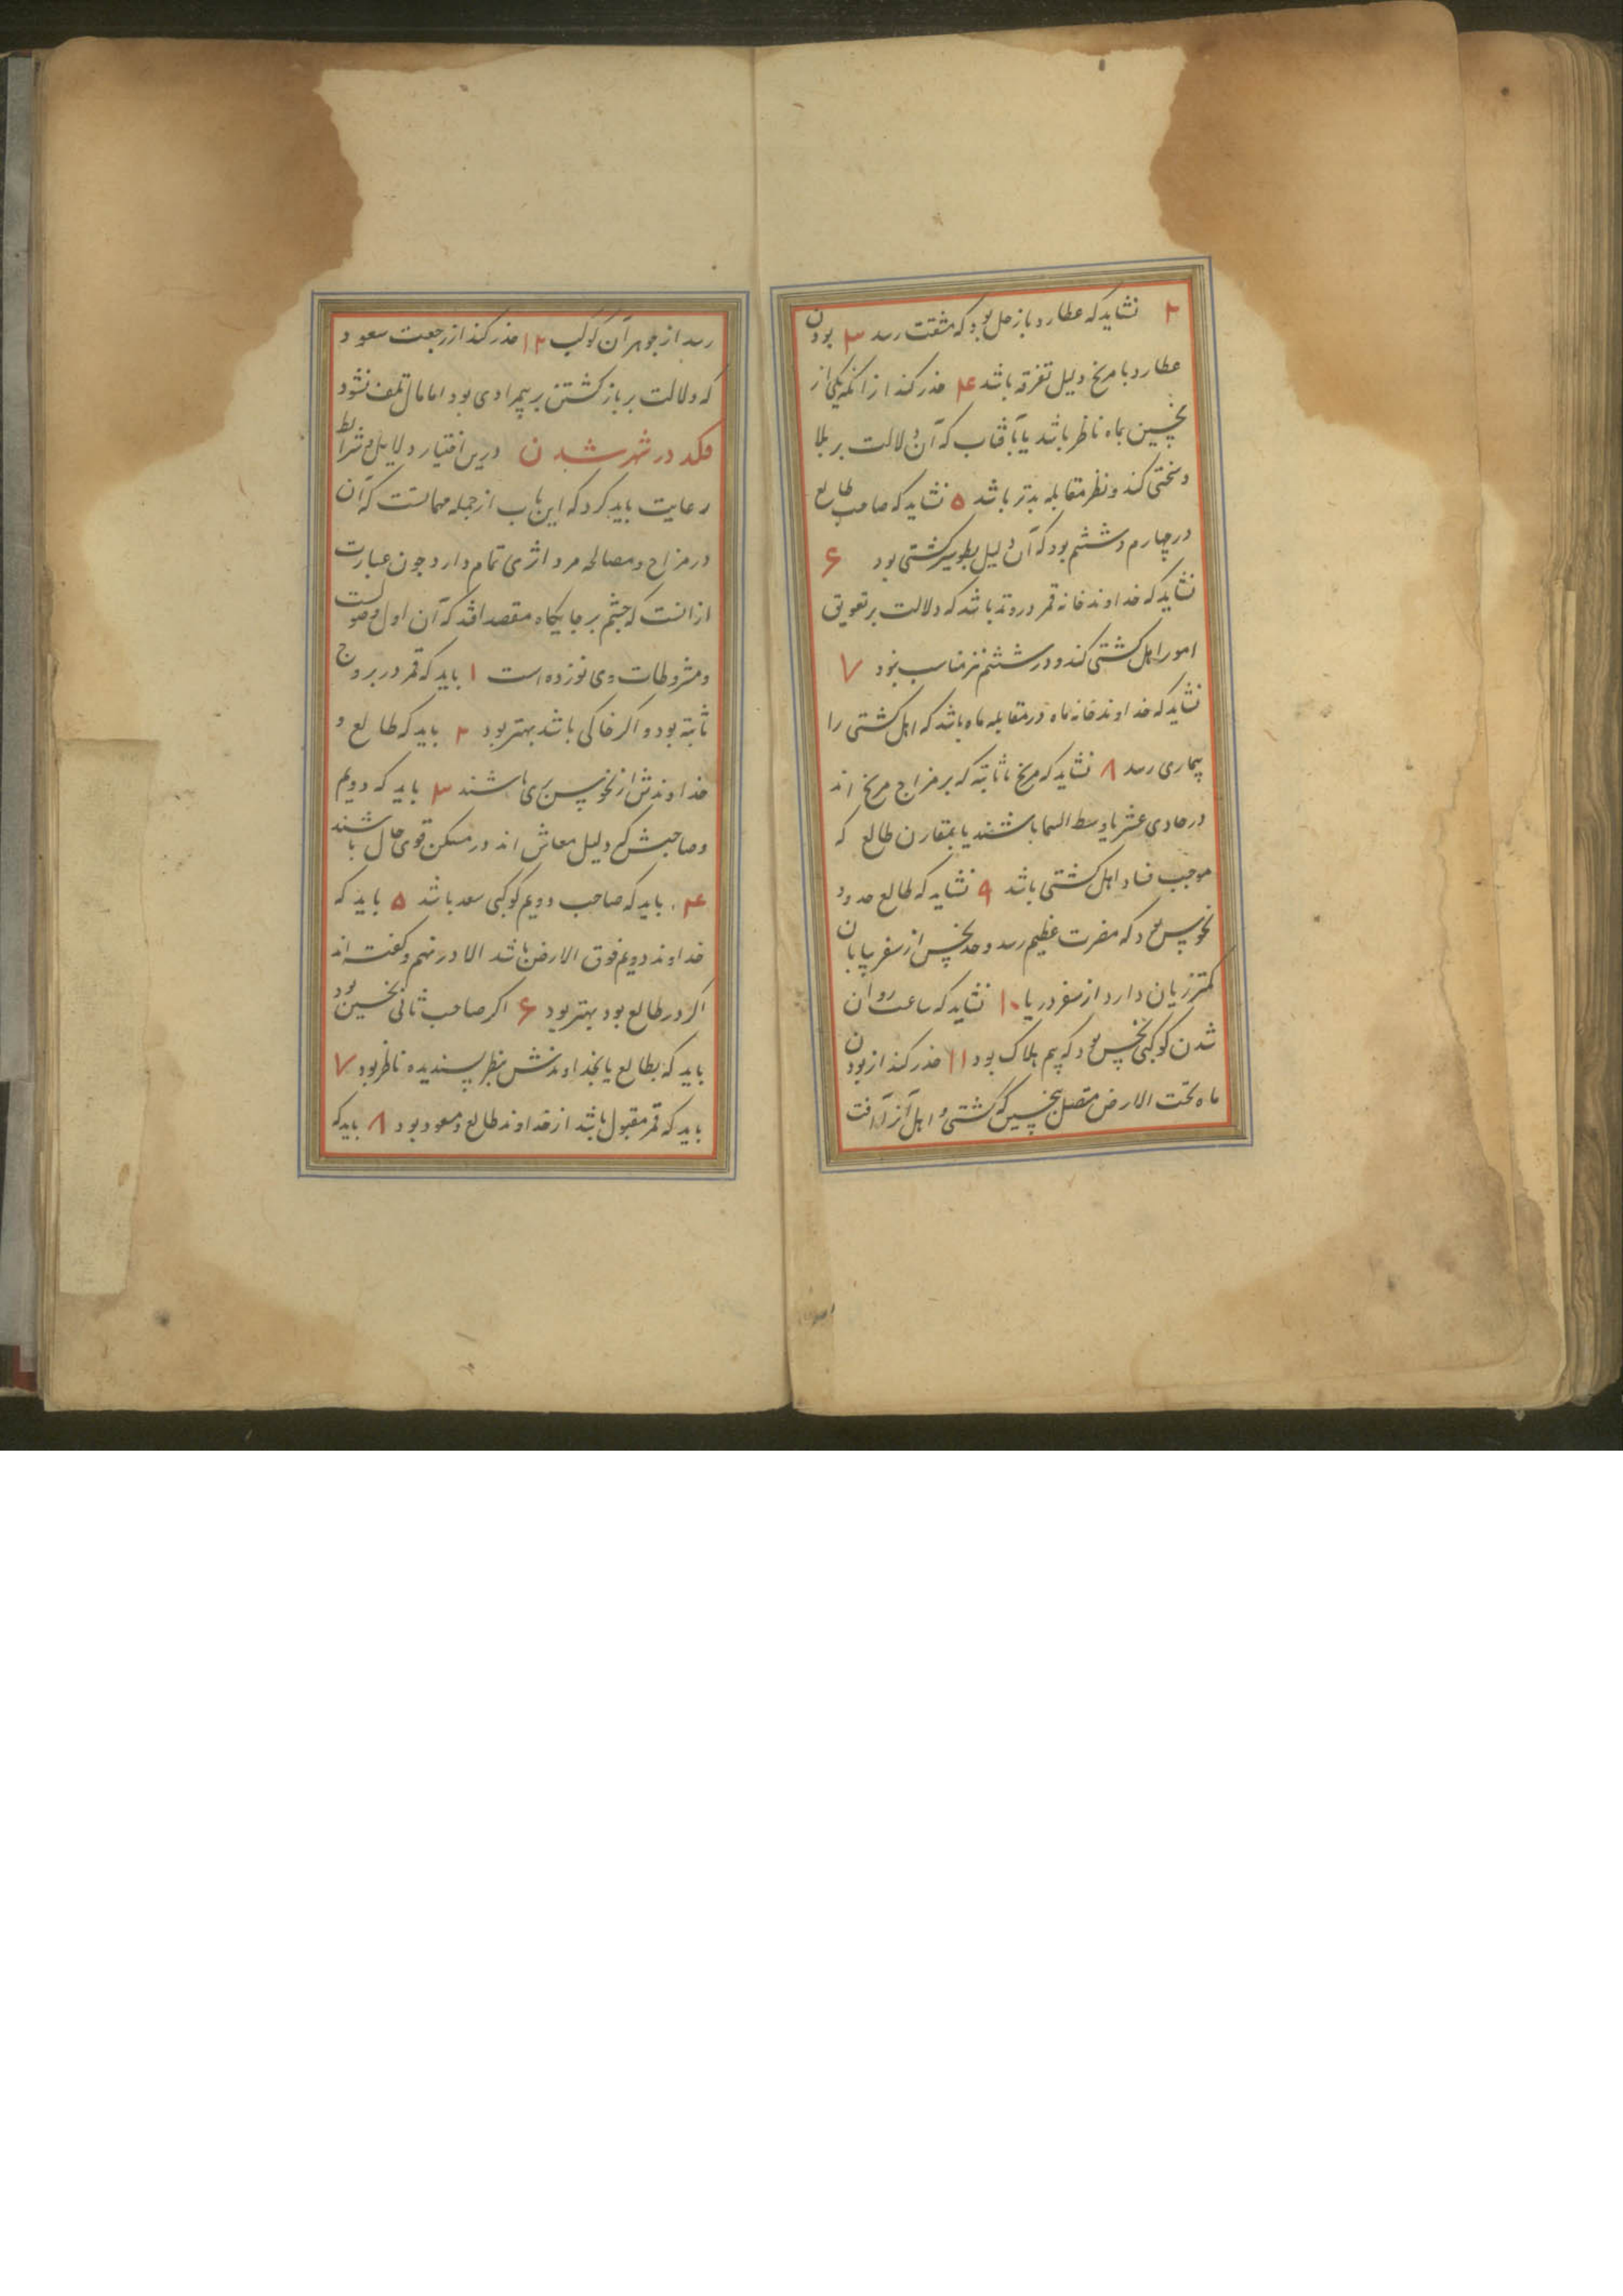 ۲ نشاید که عطارد با زحل بود که مشقت رسد ۳ بودن
عطارد با مریخ دلیل تفرقه باشد ۴ حذر کند از انکه یکی از
نحسین بماه ناظر باشد یا بآفتاب که آن دلالت بر بلا
و سختی کند و نظر مقابله بدتر باشد ۵ نشاید که صاحب طالع
در چهارم و ششم بود که آن دلیل بطو سیر کشتی بود ۶
نشاید که خداوند خانه قمر در وتد باشد که دلالت بر تعویق
امور اهل کشتی کند و در ششم نیز مناسب نبود ۷
نشاید که خداوند خانه ماه در مقابله ماه باشد که اهل کشتی را
بیماری رسد ۸ نشاید که مریخ یا ثابته که بر مزاج مریخ اند
در حادی عشر یا وسط السما باشند یا بمقارن طالع که
موجب فساد اهل کشتی باشد ۹ نشاید که طالع حدود
نحوس بود که مضرت عظیم رسد و حد نحس از سفر بیابان
کمتر زیان دارد از سفر دریا ۱۰ نشاید که ساعت روان
شدن کوکبی نحس بود که بیم هلاک بود ۱۱ حذر کند از بودن
ماه تحت الارض متصل بنحسین که کشتی و اهل آنرا آفت
رسد از جوهر آن کوکب ۱۲ حذر کند از رجعت سعود
که دلالت بر باز کشتن بر بیمرادی بود اما مال تلف نشود
درین اختیار دلایل و شرائط
رعایت باید کرد که این باب از جمله مهماتست که آن
در مزاج و مصالحه مرد اثری تمام دارد چون عبارت
از انست که چشم بر جایکاه مقصد افتد که آن اول وصولست
و مشروطات وی نوزده است ۱ باید که قمر در بروج
ثابته بود و اکر خاکی باشد بهتر بود ۲ باید که طالع و
خداوندش از نحوس بری باشند ۳ باید که دویم
و صاحبش که دلیل معاش اند در مسکن قوی حال باشند
۴ باید که صاحب دویم کوکبی سعد باشد ۵ باید که
خداوند دویم فوق الارض باشد الا در نهم و کفته اند
اکر در طالع بود بهتر بود ۶ اکر صاحب ثانی نحسین بود
باید که بطالع یا بخداوندش بنظر پسندیده ناظر بود ۷
باید که قمر مقبول باشد از خداوند طالع و مسعود بود ۸ باید که